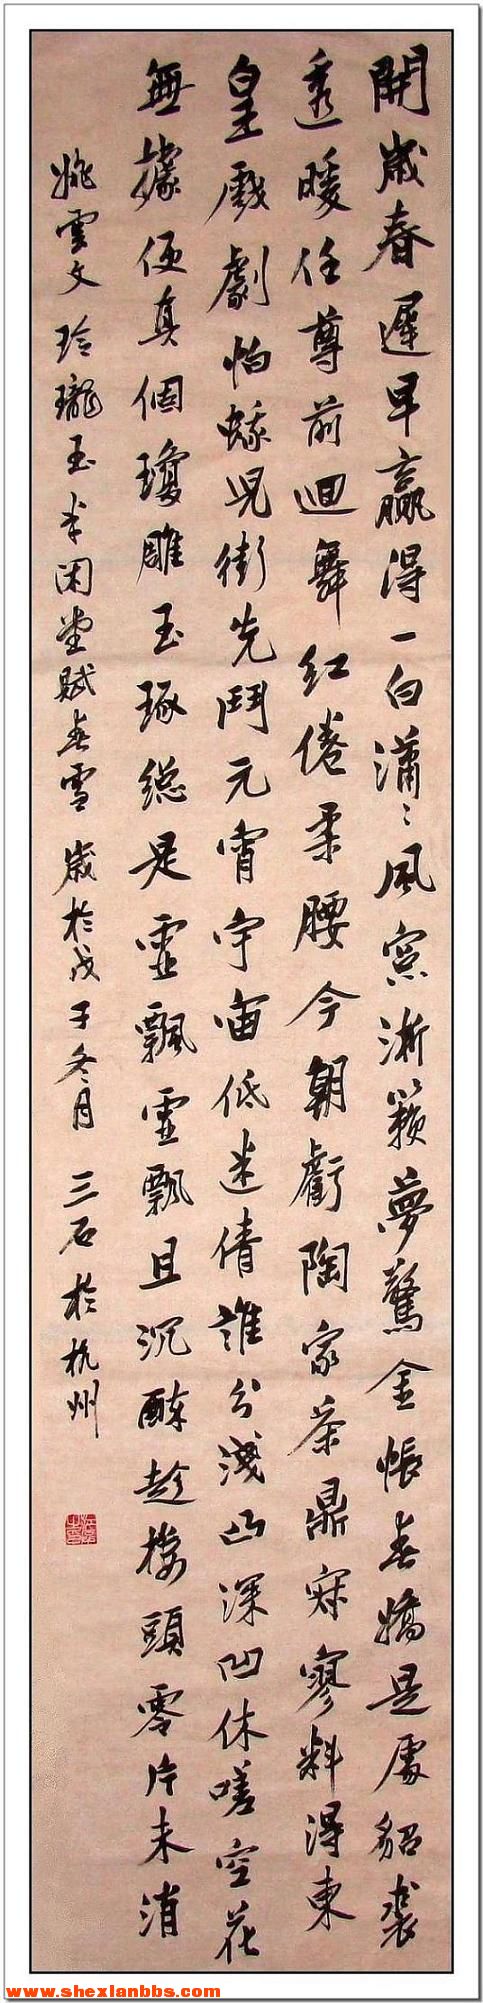 開歲春遲早贏得一白瀟〻風窓淅簌夢驚金帳春嬌是處貂裘
透暖任尊前迴舞紅倦柔腰今朝虧陶家茶鼎寂寥料得東
皇戲劇怕蛾兒街先鬥元宵宇宙低迷倩誰分淺凸深凹休嗟空花
無據便真個瓊雕玉琢總是虛飄虛飄且沉醉趁樓頭零片未消
姚雲文玲瓏玉半閑堂賦春雪 歲於戊子冬月 三石於杭州
www.shexianbbs.com